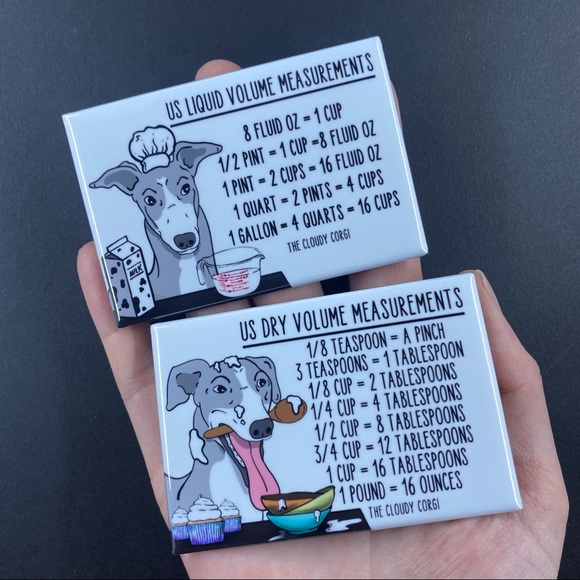 US LIQUID VOLUME MEASUREMENTS
8 FLUID OZ = 1 CUP
1/2 PINT = 1 CUP =8 FLUID OZ
1 PINT = 2 CUPS = 16 FLUID OZ
1 QUART = 2 PINTS = 4 CUPS
1 GALLON = 4 QUARTS = 16 CUPS
THE CLOUDY CORGI
MILK
US DRY VOLUME MEASUREMENTS
1/8 TEASPOON = A PINCH
3 TEASPOONS = 1 TABLESPOON
1/8 CUP = 2 TABLESPOONS
1/4 CUP = 4 TABLESPOONS
1/2 CUP = 8 TABLESPOONS
3/4 CUP = 12 TABLESPOONS
1 CUP = 16 TABLESPOONS
1 POUND = 16 OUNCES
THE CLOUDY CORGI